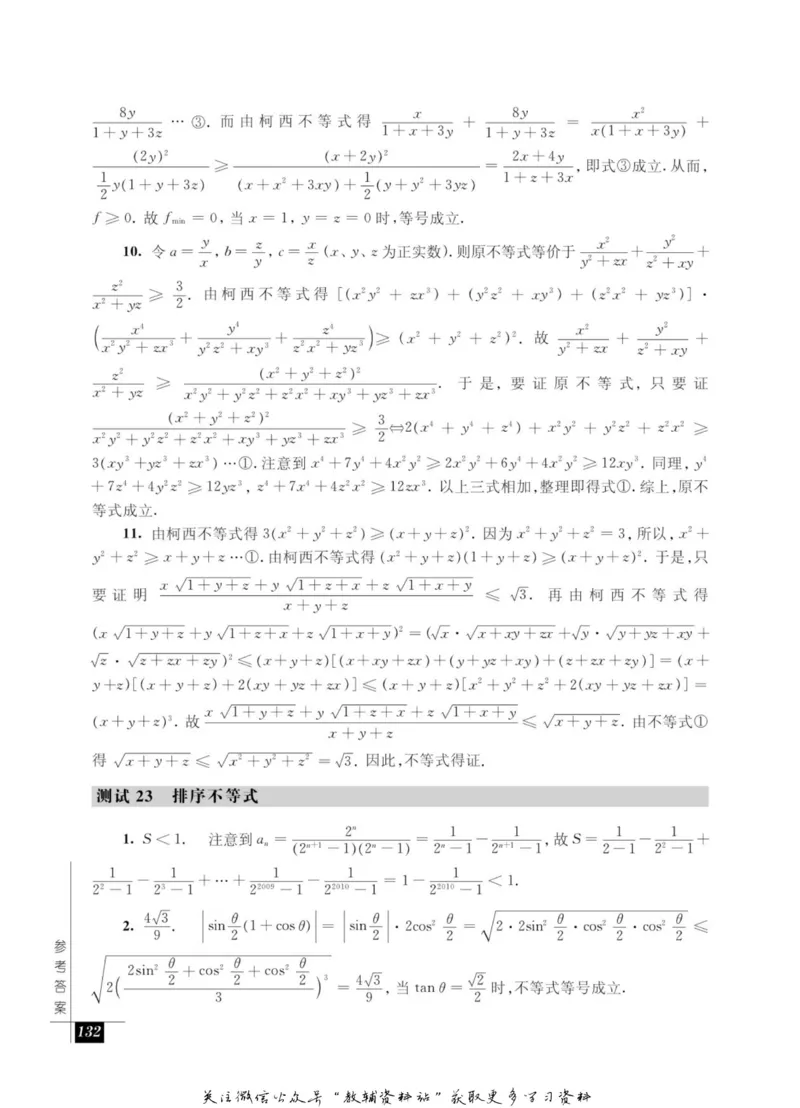 $\frac{8y}{1+y+3z}$ … ③. 而由柯西不等式得 $\frac{x}{1+x+3y}+\frac{8y}{1+y+3z}=\frac{x^2}{x(1+x+3y)}+$
$\frac{(2y)^2}{\frac{1}{2}y(1+y+3z)}\geqslant\frac{(x+2y)^2}{(x+x^2+3xy)+\frac{1}{2}(y+y^2+3yz)}=\frac{2x+4y}{1+z+3x}$,即式③成立.从而,
$f\geqslant 0$. 故 $f_{\min}=0$, 当 $x=1$, $y=z=0$ 时,等号成立.
10. 令 $a=\frac{y}{x}$, $b=\frac{z}{y}$, $c=\frac{x}{z}$ (x、y、z 为正实数).则原不等式等价于 $\frac{x^2}{y^2+zx}+\frac{y^2}{z^2+xy}+$
$\frac{z^2}{x^2+yz}\geqslant\frac{3}{2}$. 由柯西不等式得 $[(x^2y^2+zx^3)+(y^2z^2+xy^3)+(z^2x^2+yz^3)]\cdot$
$\left(\frac{x^4}{x^2y^2+zx^3}+\frac{y^4}{y^2z^2+xy^3}+\frac{z^4}{z^2x^2+yz^3}\right)\geqslant(x^2+y^2+z^2)^2$. 故 $\frac{x^2}{y^2+zx}+\frac{y^2}{z^2+xy}+$
$\frac{z^2}{x^2+yz}\geqslant\frac{(x^2+y^2+z^2)^2}{x^2y^2+y^2z^2+z^2x^2+xy^3+yz^3+zx^3}$. 于是, 要证原不等式, 只要证
$\frac{(x^2+y^2+z^2)^2}{x^2y^2+y^2z^2+z^2x^2+xy^3+yz^3+zx^3}\geqslant\frac{3}{2}\Leftrightarrow 2(x^4+y^4+z^4)+x^2y^2+y^2z^2+z^2x^2\geqslant$
$3(xy^3+yz^3+zx^3)$ …①.注意到 $x^4+7y^4+4x^2y^2\geqslant 2x^2y^2+6y^4+4x^2y^2\geqslant 12xy^3$. 同理, $y^4$
$+7z^4+4y^2z^2\geqslant 12yz^3$, $z^4+7x^4+4z^2x^2\geqslant 12zx^3$. 以上三式相加,整理即得式①.综上,原不
等式成立.
11. 由柯西不等式得 $3(x^2+y^2+z^2)\geqslant(x+y+z)^2$. 因为 $x^2+y^2+z^2=3$,所以, $x^2+$
$y^2+z^2\geqslant x+y+z$ …①.由柯西不等式得 $(x^2+y+z)(1+y+z)\geqslant(x+y+z)^2$. 于是,只
要证明 $\frac{x\sqrt{1+y+z}+y\sqrt{1+z+x}+z\sqrt{1+x+y}}{x+y+z}\leqslant\sqrt{3}$. 再由柯西不等式得
$(x\sqrt{1+y+z}+y\sqrt{1+z+x}+z\sqrt{1+x+y})^2=(\sqrt{x}\cdot\sqrt{x+xy+zx}+\sqrt{y}\cdot\sqrt{y+yz+xy}+$
$\sqrt{z}\cdot\sqrt{z+zx+zy})^2\leqslant(x+y+z)[(x+xy+zx)+(y+yz+xy)+(z+zx+zy)]=(x+$
$y+z)[(x+y+z)+2(xy+yz+zx)]\leqslant(x+y+z)[x^2+y^2+z^2+2(xy+yz+zx)]=$
$(x+y+z)^3$. 故 $\frac{x\sqrt{1+y+z}+y\sqrt{1+z+x}+z\sqrt{1+x+y}}{x+y+z}\leqslant\sqrt{x+y+z}$. 由不等式①
得 $\sqrt{x+y+z}\leqslant\sqrt{x^2+y^2+z^2}=\sqrt{3}$. 因此,不等式得证.
测试 23 排序不等式
1. $S<1$. 注意到 $a_n=\frac{2^n}{(2^{n+1}-1)(2^n-1)}=\frac{1}{2^n-1}-\frac{1}{2^{n+1}-1}$,故 $S=\frac{1}{2-1}-\frac{1}{2^2-1}+$
$\frac{1}{2^2-1}-\frac{1}{2^3-1}+\cdots+\frac{1}{2^{2009}-1}-\frac{1}{2^{2010}-1}=1-\frac{1}{2^{2010}-1}<1$.
2. $\frac{4\sqrt{3}}{9}$. $\left|\sin\frac{\theta}{2}(1+\cos\theta)\right|=\left|\sin\frac{\theta}{2}\right|\cdot 2\cos^2\frac{\theta}{2}=\sqrt{2\cdot 2\sin^2\frac{\theta}{2}\cdot\cos^2\frac{\theta}{2}\cdot\cos^2\frac{\theta}{2}}\leqslant$
$\sqrt{2\left(\frac{2\sin^2\frac{\theta}{2}+\cos^2\frac{\theta}{2}+\cos^2\frac{\theta}{2}}{3}\right)^3}=\frac{4\sqrt{3}}{9}$, 当 $\tan\theta=\frac{\sqrt{2}}{2}$ 时,不等式等号成立.
参考答案
132
关注微信公众号"教辅资料站"获取更多学习资料